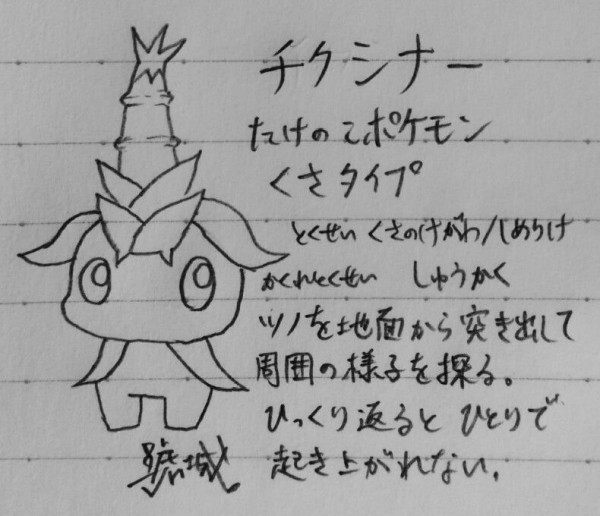 チクシナー
たけのこポケモン
くさタイプ
とくせい くさのけがわ/しめりけ
かくれとくせい しゅうかく
ツノを地面から突き出して
周囲の様子を探る。
ひっくり返ると ひとりで
起き上がれない。